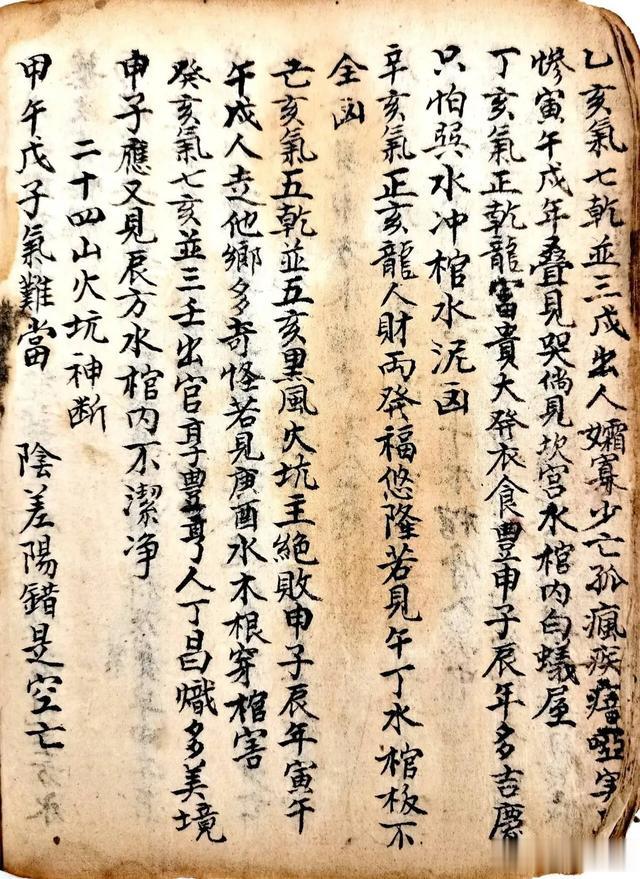 乙亥氣七乾並三戌出人孀寡少亡孤瘋疾瘖啞
慘寅午戌年叠見哭倘見坎宮水棺内白蟻屋
丁亥氣正乾龍富貴大發衣食豊申子辰年多吉慶
只怕巽水冲棺水泥凶
辛亥氣正亥龍人財両發福悠隆若見午丁水棺板不
全凶
己亥氣五乾並五亥黒風火坑主絶敗申子辰年寅午
午戍人走他鄉多奇怪若見庚酉水木根穿棺害
癸亥氣七亥並三壬出官享豊亨人丁昌熾多美境
申子應又見辰方水棺内不潔净
二十四山火坑神断
甲午戊子氣難當 陰差陽錯是空亡